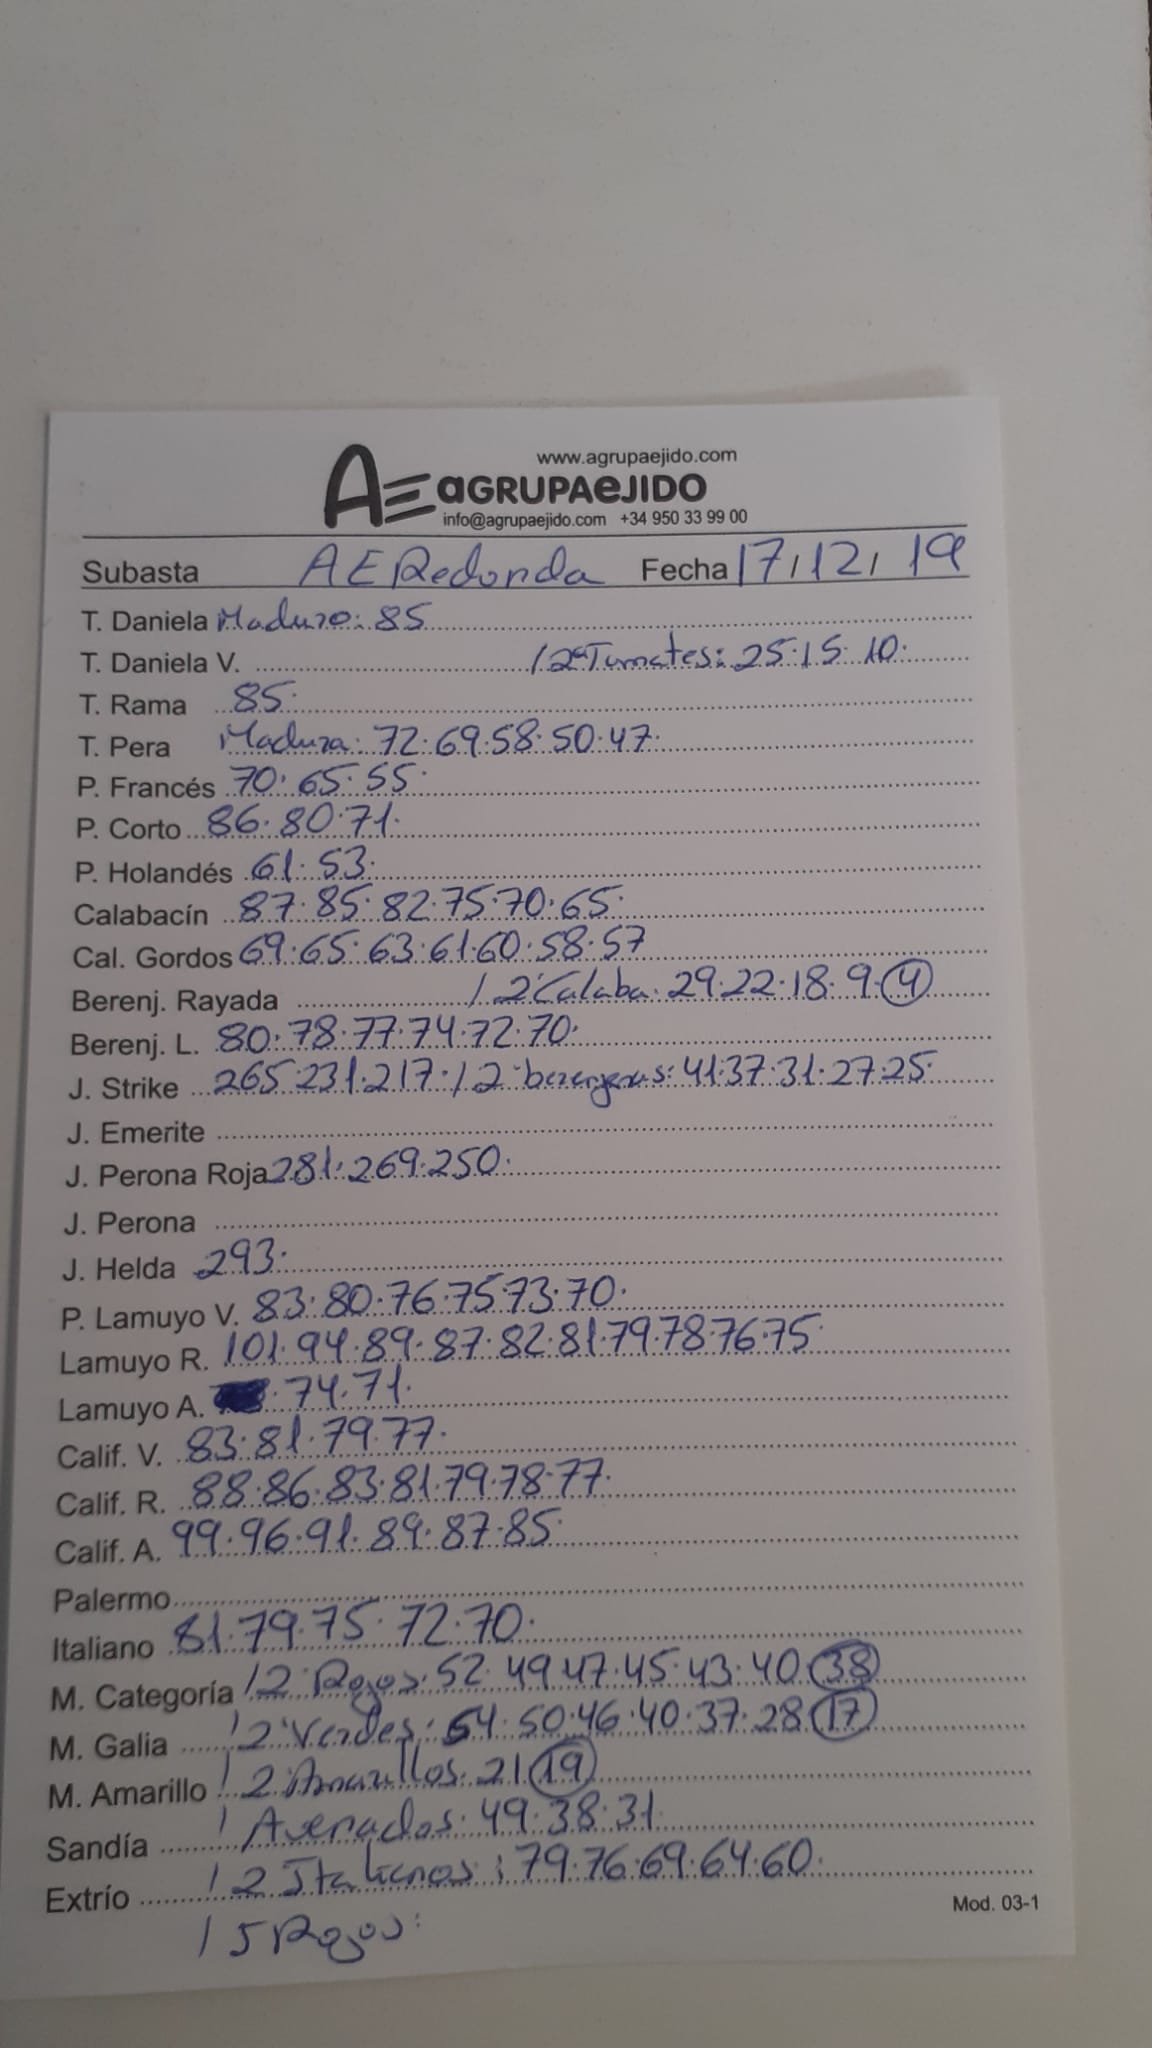 www.agrupaejido.com
AE aGRUPAeJIDO
info@agrupaejido.com +34 950 33 99 00
Subasta AE Redonda Fecha 17/12/19
T. Daniela Maduro: 85
T. Daniela V. / 2ª Tomates: 25.15.10.
T. Rama 85.
T. Pera Madura: 72.69.58.50.47.
P. Francés 70.65.55.
P. Corto 86.80.71.
P. Holandés 61.53.
Calabacín 87.85.82.75.70.65.
Cal. Gordos 69.65.63.61.60.58.57
Berenj. Rayada / 2ª Calaba. 29.22.18.9.4
Berenj. L. 80.78.77.74.72.70.
J. Strike 265.231.217. / 2ª berenjenas: 41.37.31.27.25.
J. Emerite
J. Perona Roja 281.269.250.
J. Perona
J. Helda 293.
P. Lamuyo V. 83.80.76.75.73.70.
Lamuyo R. 101.94.89.87.82.81.79.78.76.75
Lamuyo A. .74.71.
Calif. V. 83.81.79.77.
Calif. R. 88.86.83.81.79.78.77.
Calif. A. 99.96.91.89.87.85.
Palermo
Italiano 81.79.75.72.70.
M. Categoría / 2ª Rojos: 52.49.47.45.43.40.38
M. Galia / 2ª Verdes: 54.50.46.40.37.28.17
M. Amarillo / 2ª Amarillos. 21.19
Sandía / Averiados: 49.38.31.
Extrío / 2 Italianos: 79.76.69.64.60.
Mod. 03-1
/ 5 Rojos: